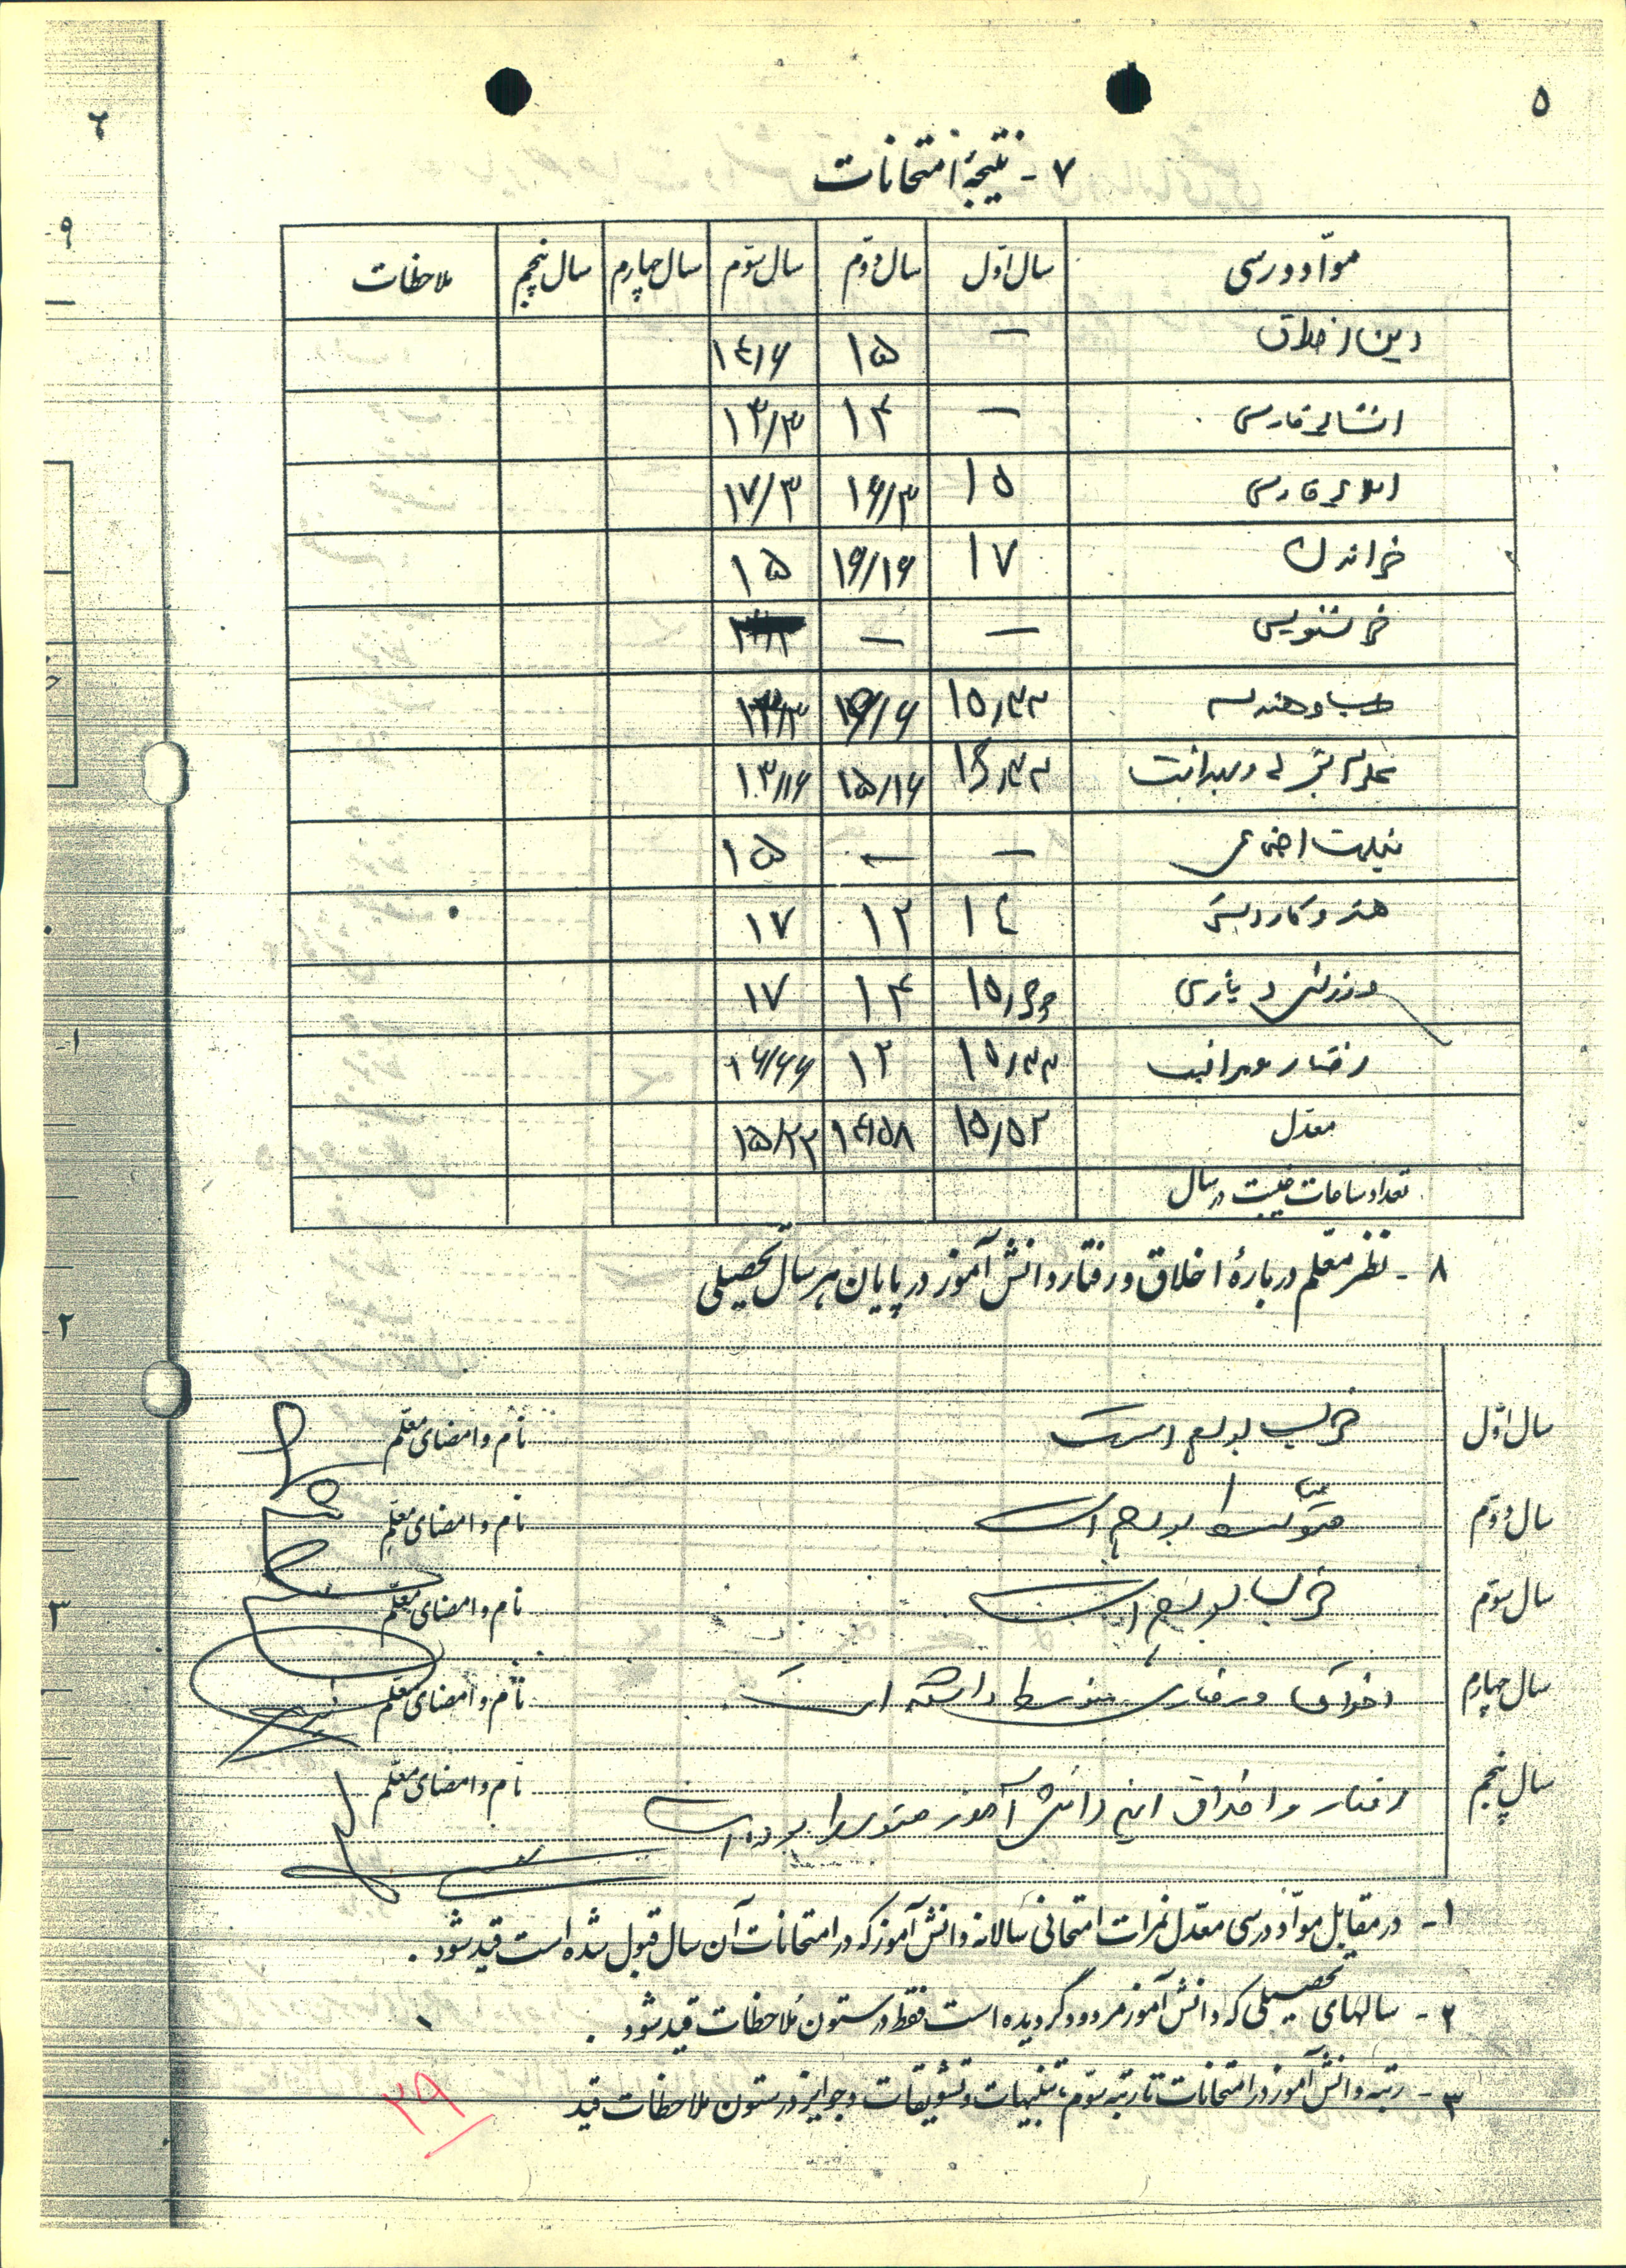 ۵
۶
۹
۷ - نتیجهٔ امتحانات
موادّ درسی سال اوّل سال دوّم سال سوّم سال چهارم سال پنجم ملاحظات
دین و اخلاق — ۱۵ ۱۴/۶
انشای فارسی — ۱۴ ۱۳/۳
املای فارسی ۱۵ ۱۶/۳ ۱۷/۳
خواندن ۱۷ ۱۶/۱۶ ۱۵
خوشنویسی — —
حساب و هندسه ۱۵/۳۳
علم الاشیاء و بهداشت ۱۵/۱۶ ۱۳/۱۶
تعلیمات اجتماعی — — ۱۵
هنر و کاردستی ۱۴ ۱۲ ۱۷
ورزش و بازی ۱۵/۶۶ ۱۴ ۱۷
رفتار و مراقبت ۱۵/۳۳ ۱۲ ۱۶/۶۶
معدل ۱۵/۵۲ ۱۴/۵۸ ۱۵/۲۲
تعداد ساعات غیبت در سال
۸ - نظر معلم دربارهٔ اخلاق و رفتار دانش آموز در پایان هر سال تحصیلی
سال اوّل خوب بوده است نام و امضای معلّم
سال دوّم متوسط بوده است نام و امضای معلّم
سال سوّم خوب بوده است نام و امضای معلّم
سال چهارم اخلاق و رفتاری متوسط داشته است نام و امضای معلّم
سال پنجم رفتار و اخلاق این دانش آموز متوسط بوده است نام و امضای معلّم
۱- در مقابل موادّ درسی معدل نمرات امتحانی سالانه دانش آموز که در امتحانات آن سال قبول شده است قید شود .
۲- سالهای تحصیلی که دانش آموز مردود گردیده است فقط در ستون ملاحظات قید شود .
۳- رتبه دانش آموز در امتحانات تا رتبه سوّم ، تنبیهات و تشویقات و جوایز در ستون ملاحظات قید
۲۹
۱-
۲
۳